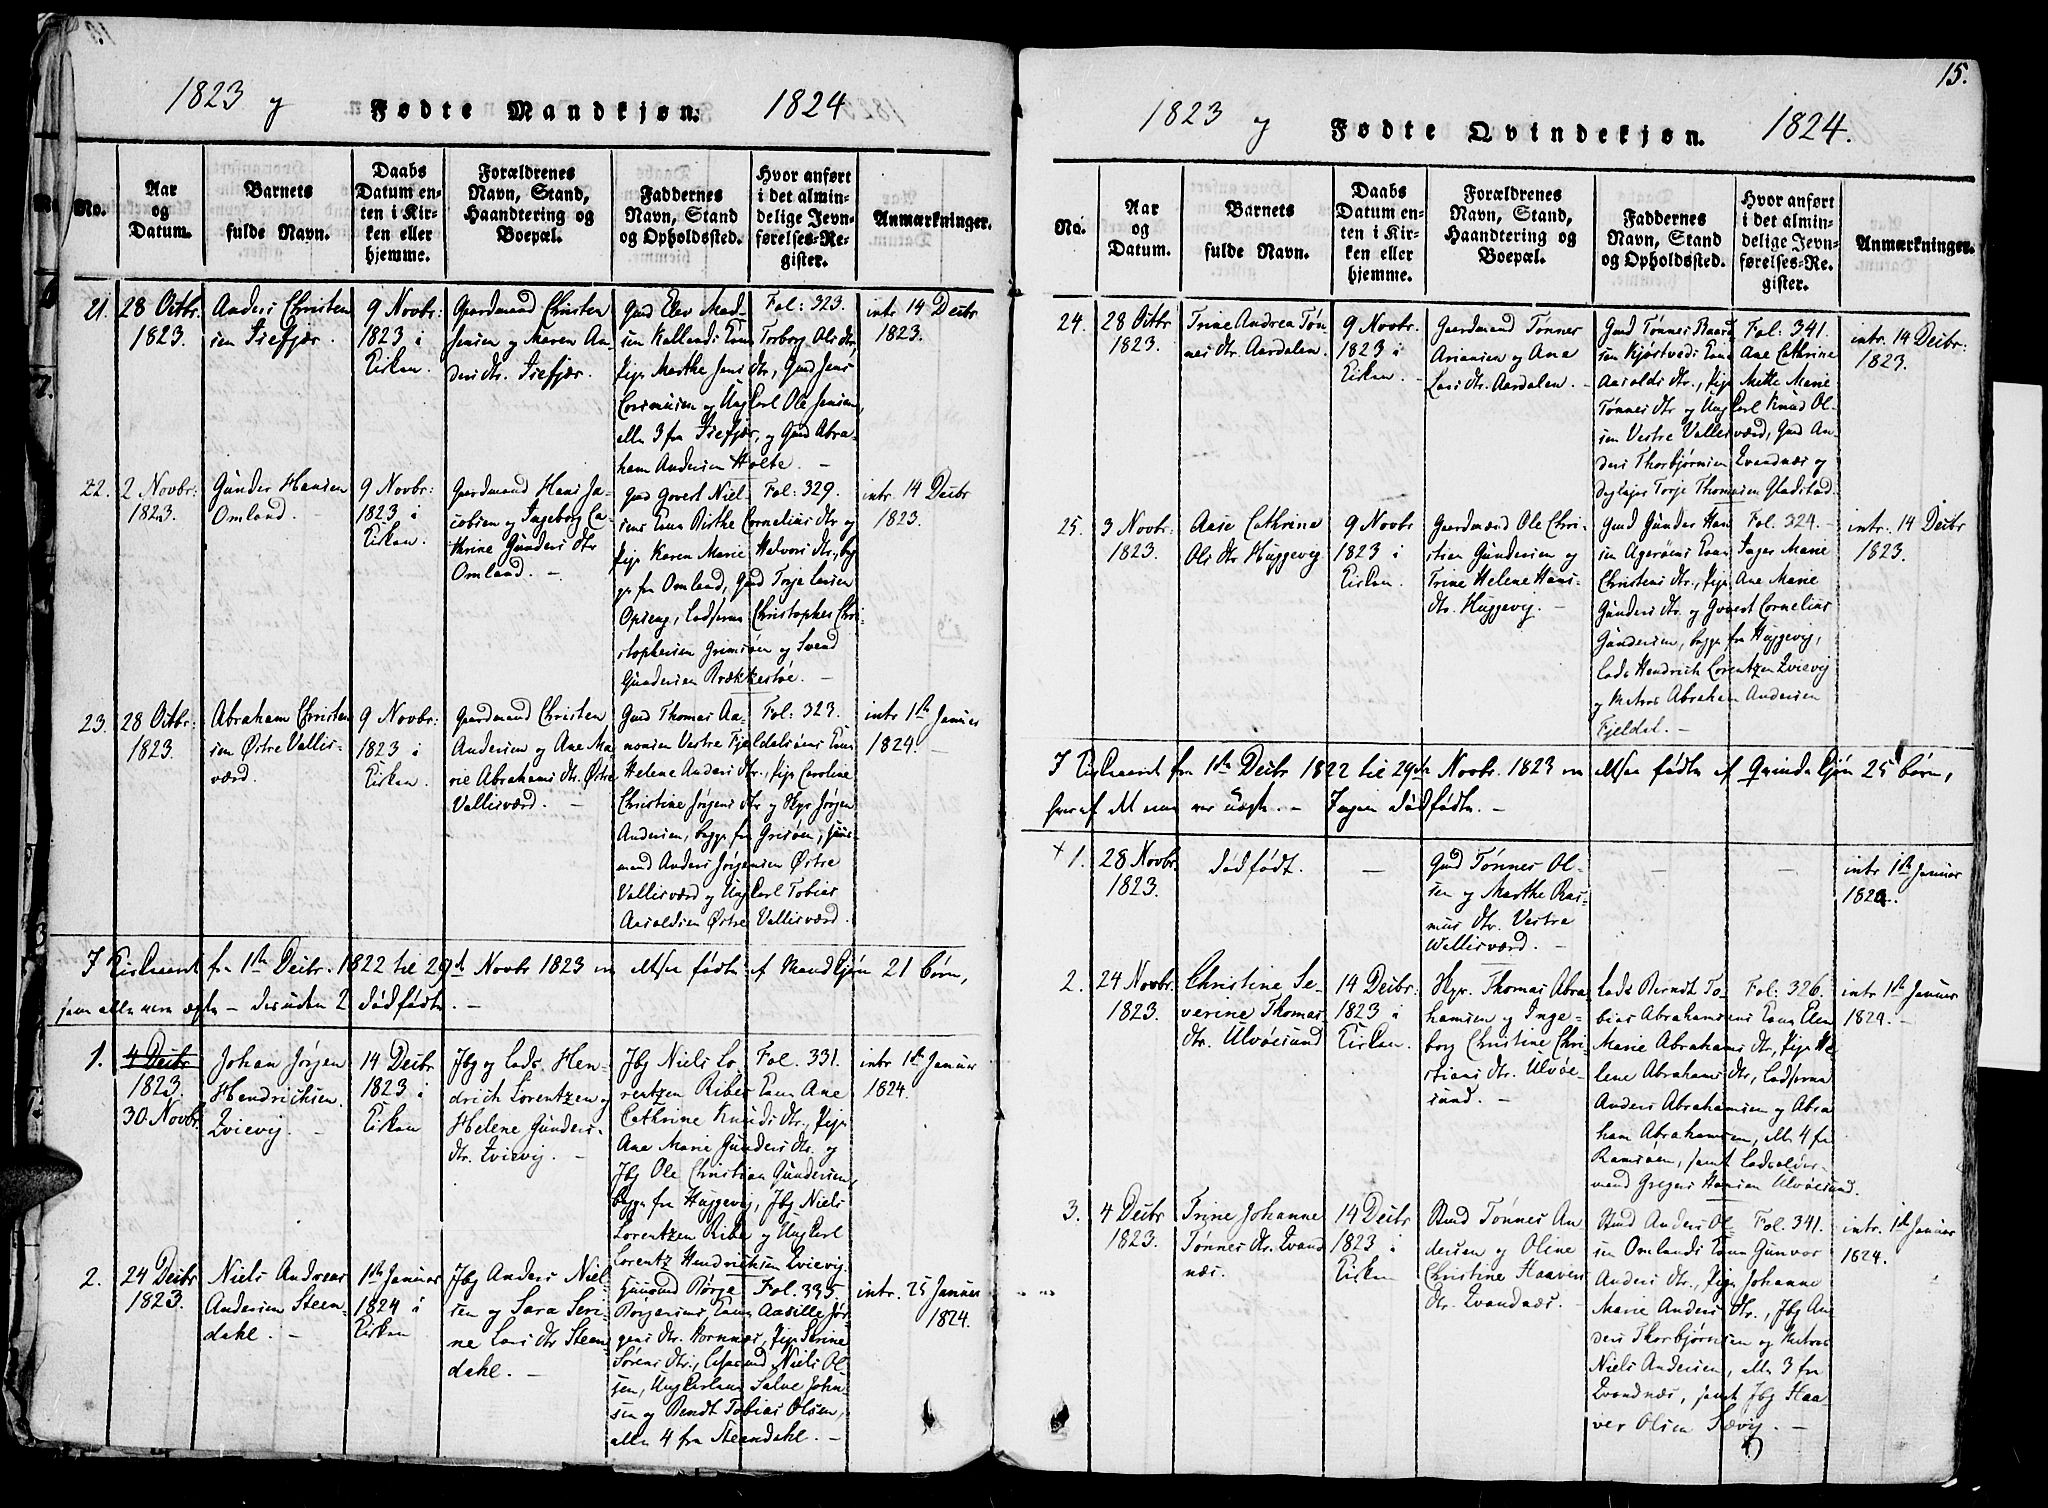 1823 og Fødte Mandkjøn. 1824
No.
Aar
og
Datum.
Barnets
fulde Navn.
Daabs
Datum en-
ten i Kir-
ken eller
hjemme.
Forældrenes
Navn, Stand,
Haandtering og
Boepæl.
Faddernes
Navn, Stand
og Opholdssted.
Hvor anført
i det almin-
delige Jevn-
førelses-Re-
gister.
Anmærkninger.
21.
28 Octbr.
1823.
Anders Christen
sen Isefjær.
9 Novbr:
1823 i
Kirken.
Gaardmand Christen
Jensen og Maren An
ders dtr. Isefjær.
Gmd Elev Mad-
sen Kallands Kone Torborg Ols dtr,
Pige Marthe Jens dtr, Gmd Jens
og Ung Carl Ole Jensen,
alle 3 fra Isefjær, og Gmd Abra-
ham Andersen Holte. –
Fol: 323.
intr 14 Decbr
1823.
22.
2 Novbr:
1823.
Gunder Hansen
Omland. –
9 Novbr:
1823 i
Kirken.
Gaardmand Hans Ja-
cobsen og Ingeborg Ca-
thrine Gunders dtr
Omland. –
Gmd Govert Niel-
sens Kone Birthe Cornelius dtr og
Pige Karen Marie Halvors dtr, beg-
ge fra Omland, Gmd Terje Larsen
Opseng, Christopher Chri-
stophersen Grimsøen og Svend
Gundersen Brækkestøe. –
Fol: 329.
intr. 14 Decbr
1823.
23.
28 Octbr:
1823.
Abraham Christen
sen Østre Vallis-
værd.
9 Novbr:
1823 i
Kirken.
Gaardmand Christen
Andersen og Ane Ma
rie Abrahams dtr. Østre
Vallisværd. –
Gmd Thomas Aa-
nonsen Vestre Fjeldalsøens Kone
Helene Anders dtr., Pige Caroline
Christine Jørgens dtr og Skpr Jørgen
Andersen, begge fra Grisøen,
mand Anders Jørgensen Østre
Vallisværd og Ung Carl Tobias
Aasoldsen Østre Vallisværd.
Fol: 323.
intr 1ste Januar
1824. –
I Kirkeaaret fra 1ste Decbr. 1822 til 29de Novbr 1823 ere altsaa fødte af Mandkjøn 21 børn,
som alle ere ægte – desuden 2 dødfødte. –
1.
4 Decbr
1823.
30 Novbr.
Johan Jørgen
Hendrichsen
Qvievig. –
14 Decbr
1823 i
Kirken
Jbg og Lods Hen-
drich Lorentzen og
Helene Gunders-
dtr. Qvievig. –
Jbg Niels Lo-
rentzen Ribes Kone Ane
Cathrine Knuds dtr., Pige
Ane Marie Gunders dtr. og
Jbg Ole Christian Gundersen,
begge fra Huggevig, Jbg Niels
Lorentzen Ribe og Ung Carl
Lorentz Hendrichsen Qvievig.
Fol. 331.
intr 1ste Januar
1824.
2.
24 Decbr
1823.
Niels Andreas
Andersen Steen-
dahl. –
1ste Januar
1824 i
Kirken
Jbg Anders Niel-
sen og Sara Seri-
ne Lars dtr Steen
dahl. –
Børge
Børgesens Kone Aasille Jør-
gens dtr. Hornnæs, Pige Serine
Sørens dtr., Niels Ol
sen, Ung Carlene Salve John-
sen og Bendt Tobias Olsen,
alle 4 fra Steendahl. –
Fol. 335.
intr. 25 Januar
1824.
15.
1823 og Fødte Qvindekjøn. 1824.
No.
Aar
og
Datum.
Barnets
fulde Navn.
Daabs
Datum en-
ten i Kir-
ken eller
hjemme.
Forældrenes
Navn, Stand,
Haandtering og
Boepæl.
Faddernes
Navn, Stand
og Opholdssted.
Hvor anført
i det almin-
delige Jevn-
førelses-Re-
gister.
Anmærkninger.
24.
28 Octbr
1823.
Trine Andrea Tøn
nes dtr. Aardalen.
9 Novbr.
1823 i
Kirken. –
Gaardmand Tønnes
Ariansen og Ane
Lars dtr. Aardalen. –
Gmd Tønnes
sen Kjøstveds Kone Ane Cathrine
Aasolds dtr., Pige Mette Marie
Tønnes dtr og Ung Carl Knud Ol-
sen Vestre Vallisværd, Gmd An-
ders Thorbjørnsen Qvandnæs og
Terje Thomesen Gladstad.
Fol: 341.
intr. 14 Decbr:
1823.
25.
3 Novbr:
1823.
Aase Cathrine
Ols dtr Huggevig
9 Novbr
1823 i
Kirken.
Gaardmand Ole Chri-
stian Gundersen og
Trine Helene Hans-
dtr. Huggevig. –
Gmd Gunder Han
sen Agerøens Kone Inger Marie
Christens dtr., Pige Ane Marie
Gunders dtr. og Govert Cornelius
Gundersen, begge fra Huggevig,
Lods Hendrich Lorentzen Qvievig
og Matros Abraham Andersen
Fjeldal. –
Fol: 324. –
intr. 14 Decbr
1823.
I Kirkeaaret fra 1ste Decbr 1822 til 29de Novbr. 1823 ere altsaa fødte af Qvindekjøn 25 børn,
hvoraf Et var uægte. – Ingen dødfødte. –
+ 1.
28 Novbr
1823.
dødfødt.
–
Gmd Tønnes Ol-
sen og Marthe Ras-
mus dtr. Vestre
Wallisværd. –
–
–
intr 1ste Januar
1824.
2.
24 Novbr
1823.
Christine Se-
verine Thomas
dtr. Ulvøesund
14 Decbr:
1823 i
Kirken.
Skpr. Thomas Abra
hamsen og Inge-
borg Christine Chri-
stians dtr. Ulvøe-
sund. –
Lods Berndt To-
bias Abrahamsens Kone Elen
Marie Abrahams dtr, Pige He-
lene Abrahams dtr,
Anders Abrahamsen og Abra
ham Abrahamsen, alle 4 fra
Ramsøen, samt Lodsolder-
mand Gregers Hansen Ulvøesund.
Fol: 326.
intr 1ste Januar
1824. –
3.
4 Decbr
1823.
Trine Johanne
Tønnes dtr. Qvand
næs.
14 Decbr
1823 i
Kirken
Tønnes An
dersen og Oline
Christine Haavers
dtr. Qvandnæs. –
Anders Ol-
sen Omlands Kone Gunvor
Anders dtr., Pige Johanne
Marie Anders dtr., Jbg An
ders Thorbjørnsen og Matros
Niels Andersen, alle 3 fra
Qvandnæs, samt Jbg Haa-
ver Olsen Sævig. –
Fol. 341.
intr. 1ste Januar
1824.